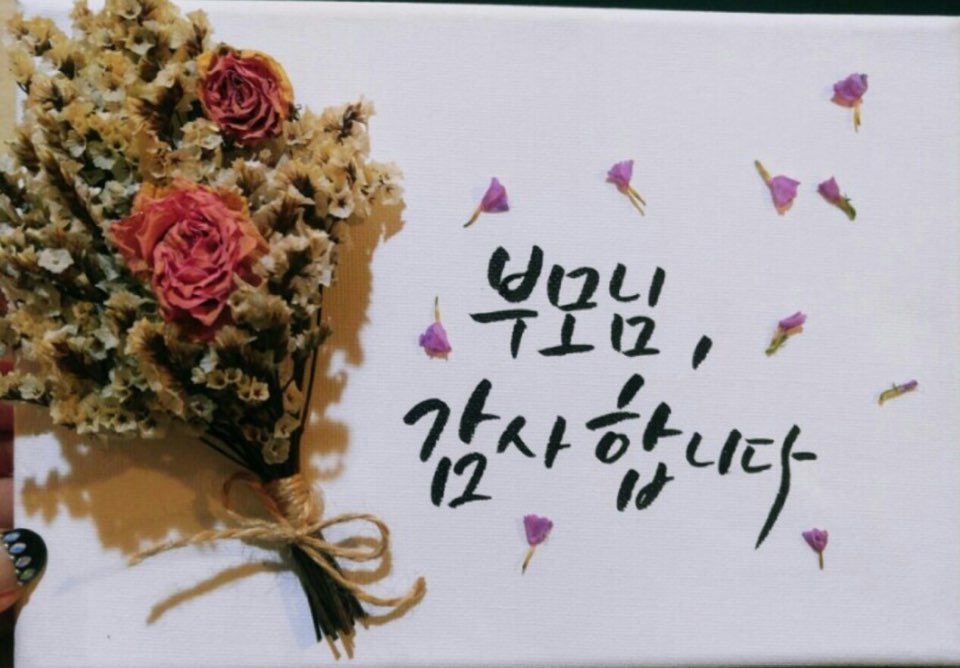 부모님,
감사합니다